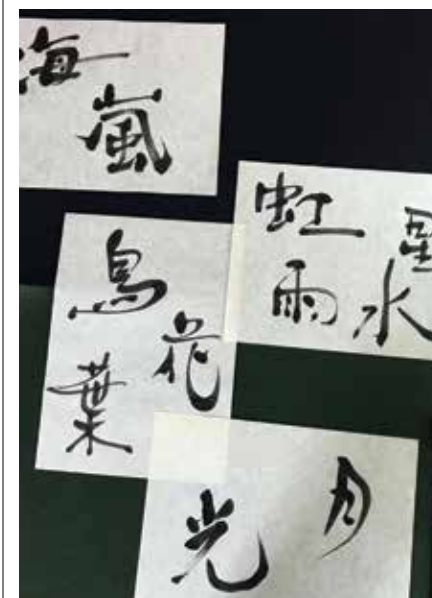 海
嵐
虹
星
雨
水
鳥
花
葉
月
光